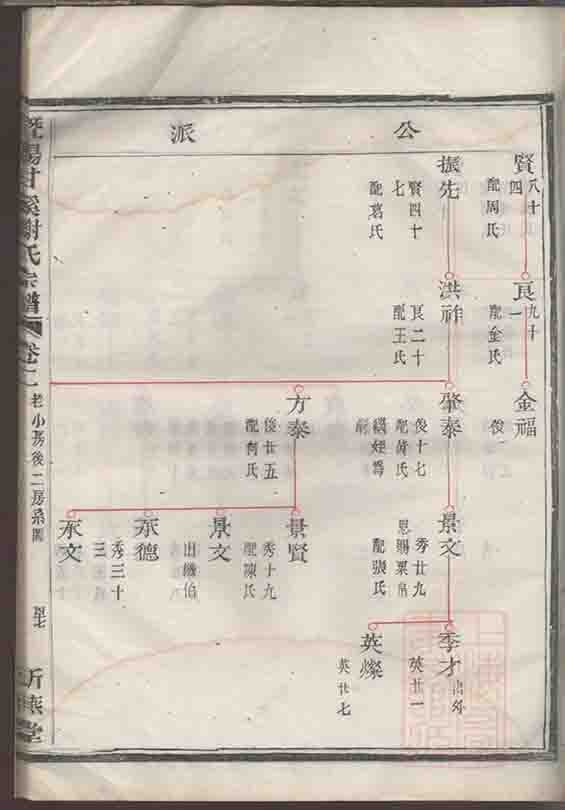 公派
賢八十四
配周氏
良九十一
配金氏
金福
俊一
振先
賢四十七
配葛氏
洪祚
良二十
配王氏
肇泰
俊十七
配黄氏
繼姪爲嗣
景文
秀廿九
恩賜粟帛
配張氏
季才
出外
英廿一
英燦
英廿七
方泰
俊廿五
配何氏
景賢
秀十九
配陳氏
景文
出繼伯
承德
秀三十
承文
暨陽甘溪謝氏宗譜
卷二
老小房後二房系圖